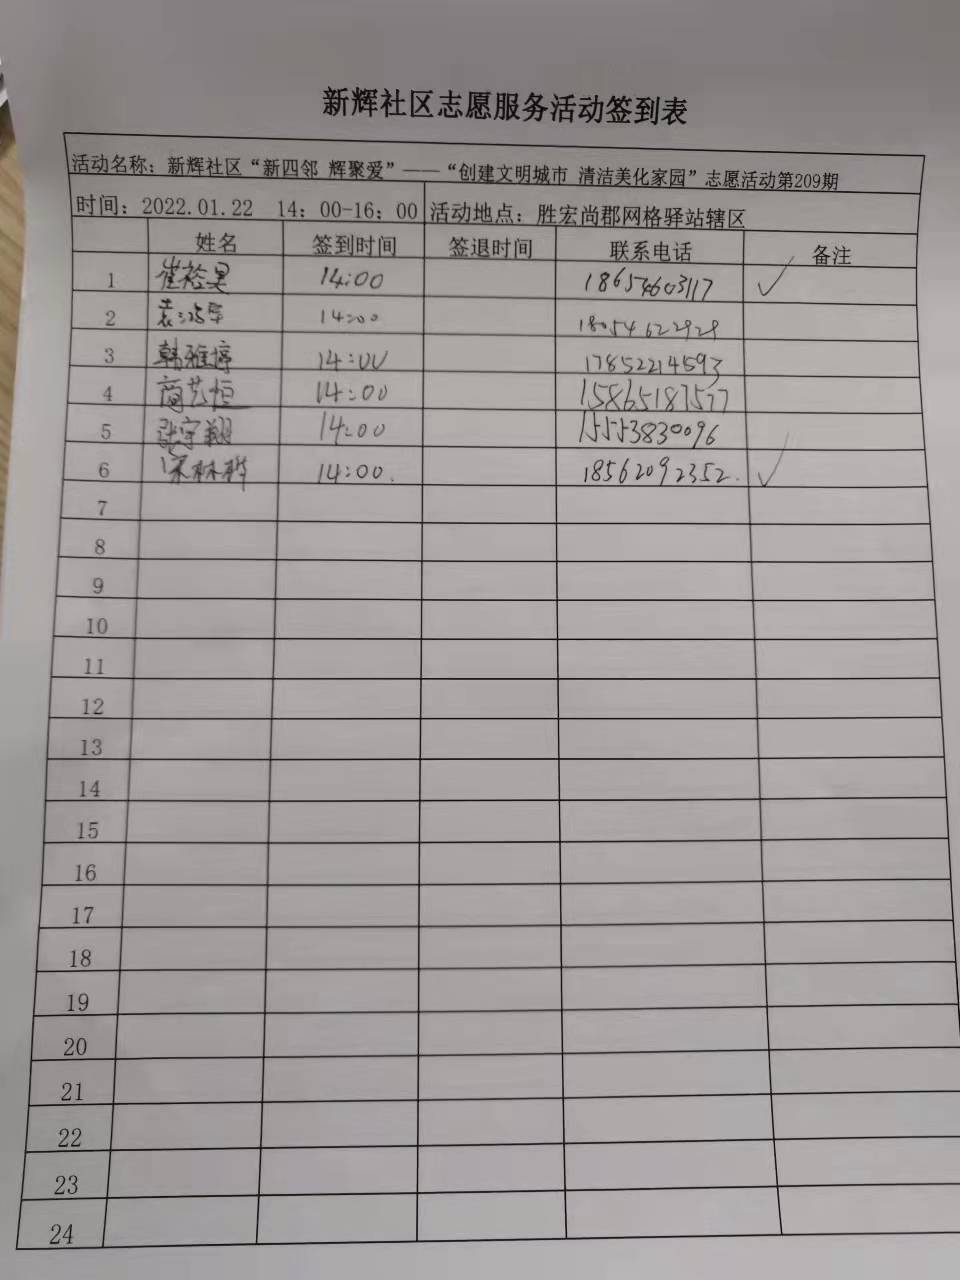 新辉社区志愿服务活动签到表
活动名称：新辉社区“新四邻 辉聚爱”——“创建文明城市 清洁美化家园”志愿活动第209期
时间：2022.01.22 14：00-16：00 活动地点：胜宏尚郡网格驿站辖区
姓名 签到时间 签退时间 联系电话 备注
1 14:00 18654603117 ✓
2 14:00 18054622929
3 韩雅婷 14:00 17852214593
4 商艺恒 14:00 15865187577
5 张宇翔 14:00 15553830096
6 梁林桦 14:00. 18562092352. ✓
7
8
9
10
11
12
13
14
15
16
17
18
19
20
21
22
23
24